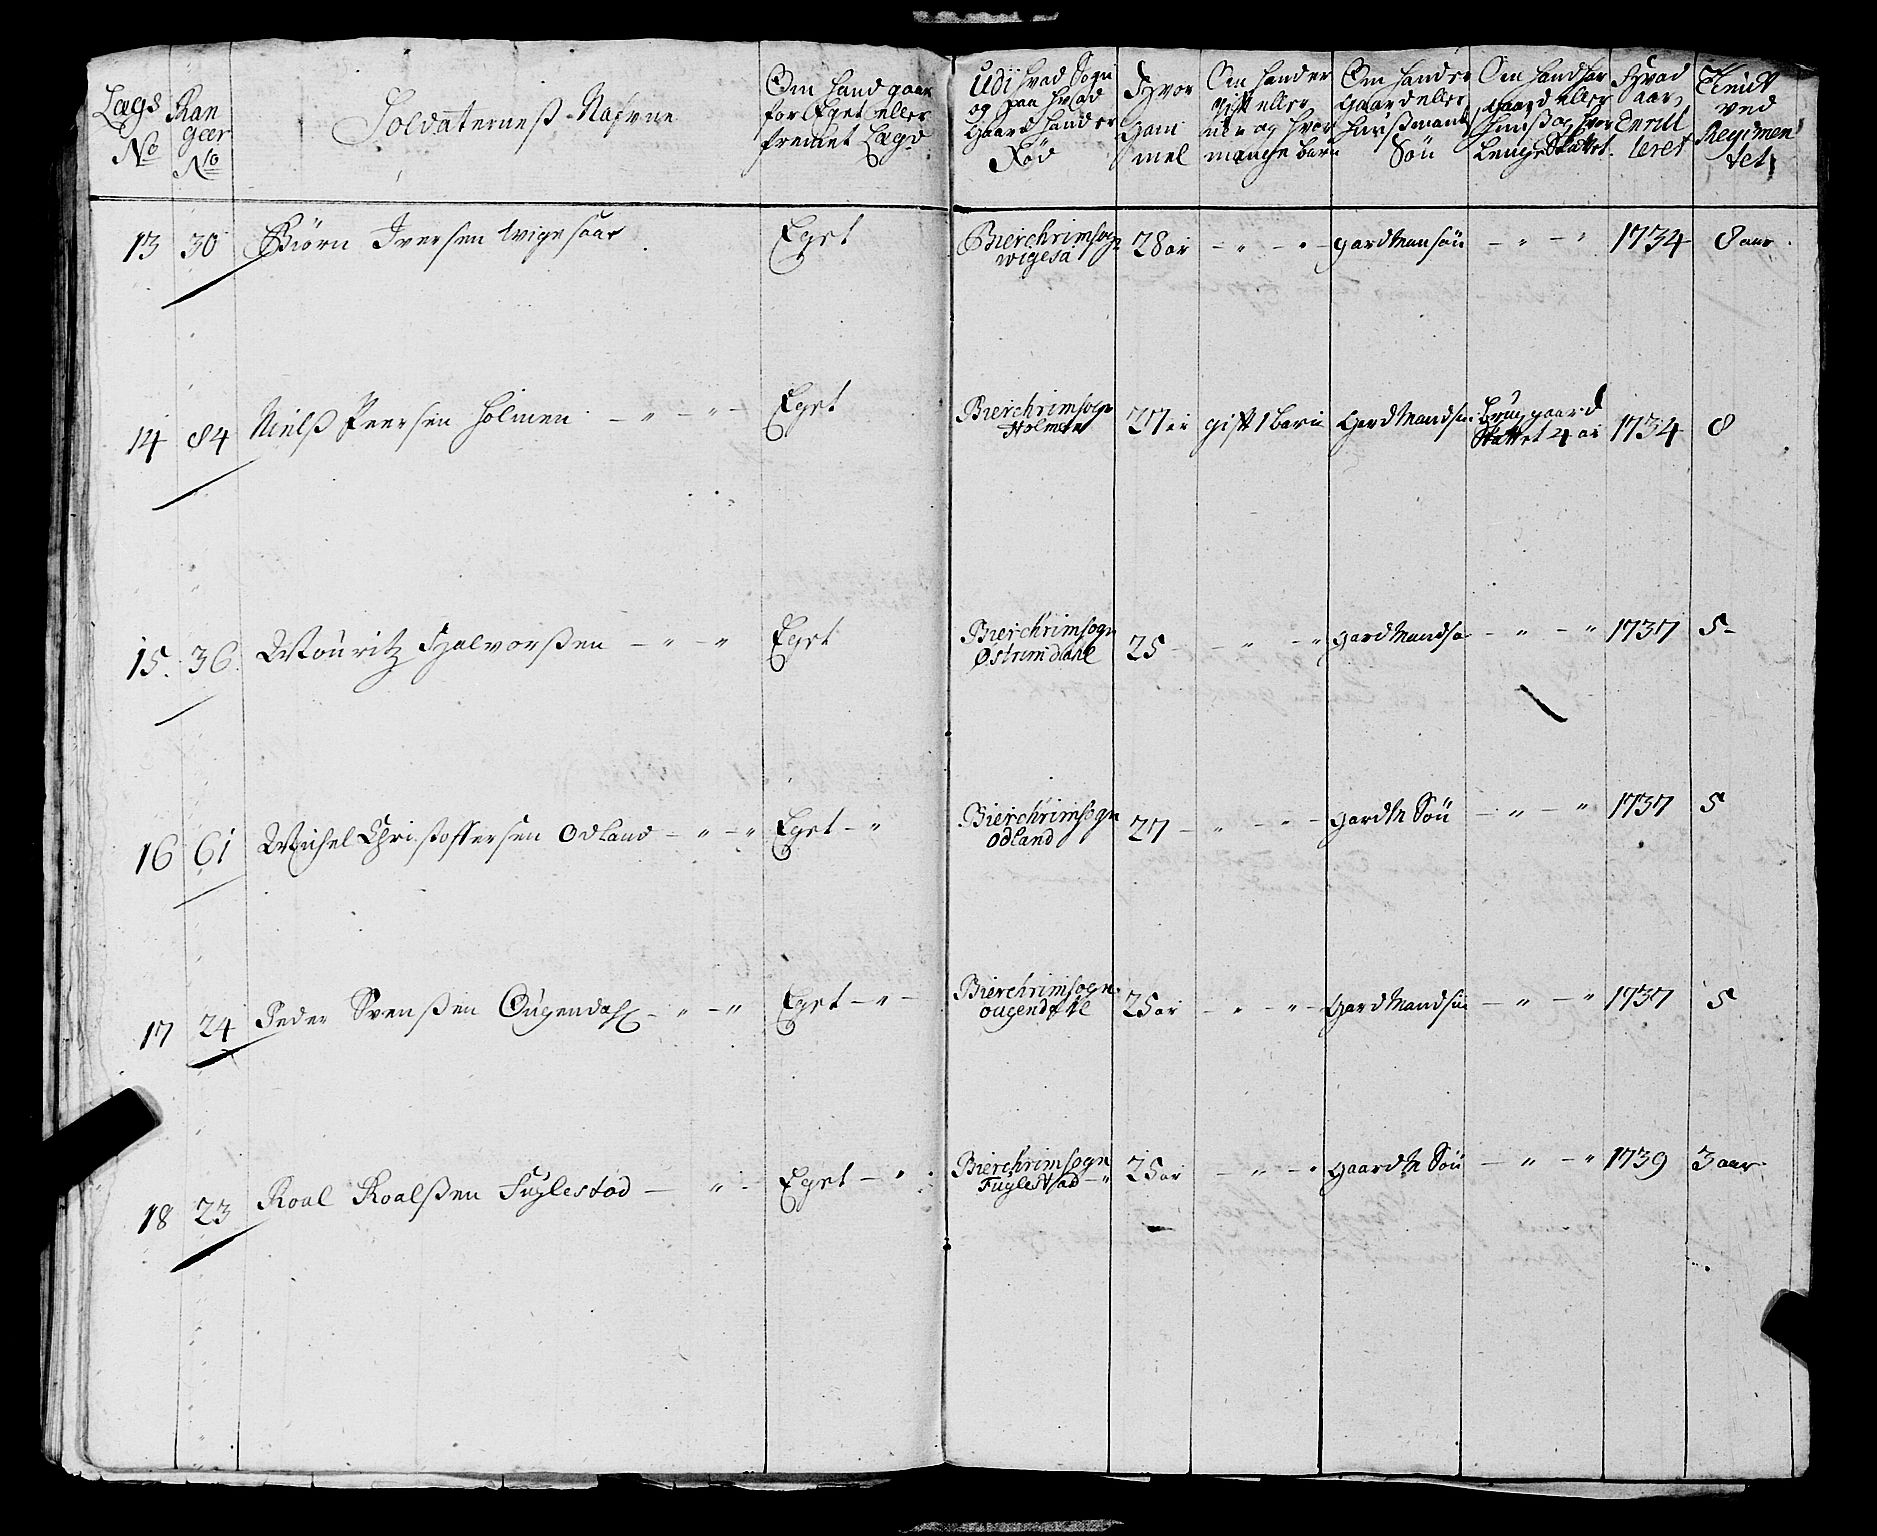 Lægs No
Ran geer No
Soldaterneß Nafvne
Om hand gaar for Eget eller fremet Lægd
Udj hvad Sogn og paa hvad Gaard hand er Fød
Hvor Gam mel
Om hand er gift eller ei og hvor mange barn
Om hand er Gaard eller Huusmands Søn
Om hand har gaard eller Huuß og hvor Lenge Skattet
Hvad aar Enrul leret
Tient ved Regimen tet
13 30 Biørn Iversen wigesaar Eget Bierchrimsogn wigesa 28 aar – " – " – gardMansøn – " – " 1734 8 aar
14 84 Nielß Peersen Holmen – " – " – Eget Bierchrimsogn Holmen 27 gift 1 barn GardMandsøn Brug gaard Skattet 4 aar 1734 8
15. 36. Mouritz Halvorßen – " – " Eget Bierchrimsogn Østrimdahl 25 – – " – " gardMandsø – " – " 1737 5 –
16 61 Michel Christoffersen Odland – " – " Eget – " Bierchrimsogn Odland 27 – " – " – gardM Søn – " – " 1737 5
17 24 Peder Svenßen Ougendahl – " – " Eget – " – Bierchrimsogn ougendahl 25 aar – " – " – GardMandsøn – " – " 1737 5
18 23 Roal Roalßen Fuglestad – " – Eget – " Bierchrimsogn Fuglestad – " 25 aar – " – " gaardM Søn – " – " 1739 3 aar